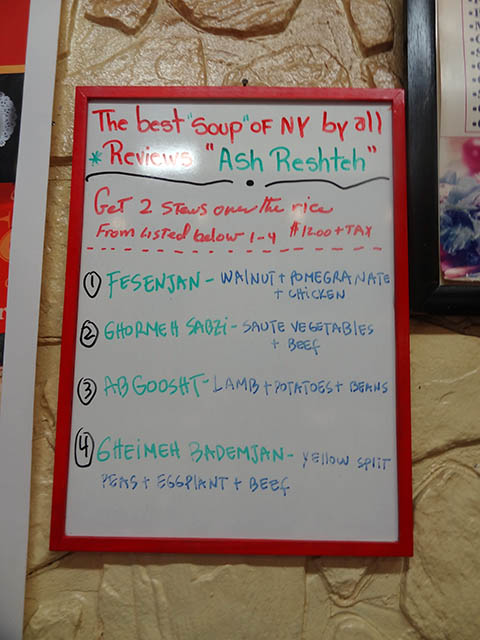 The best "soup" OF NY by all
* Reviews "Ash Reshteh"
Get 2 Stews over the rice
From Listed below 1-4 $12.00 + TAX
1 FESENJAN - WALNUT + POMEGRANATE
+ CHICKEN
2 GHORMEH SABZI - SAUTE VEGETABLES
+ BEEF
3 ABGOOSHT - LAMB + POTATOES + BEANS
4 GHEIMEH BADEMJAN - YELLOW SPLIT
PEAS + EGGPLANT + BEEF